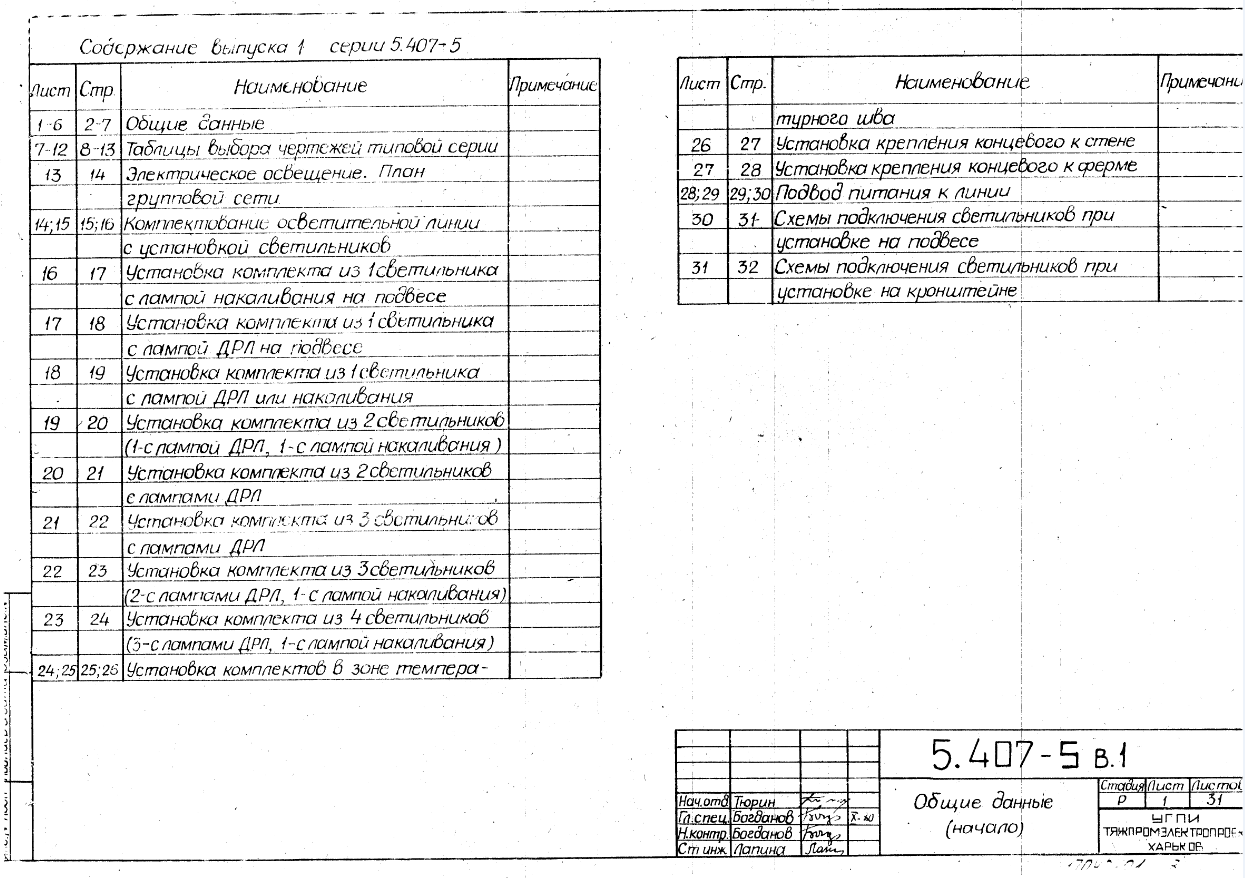 Содержание выпуска 1 серии 5.407-5
Лист Стр. Наименование Примечание
1-6 2-7 Общие данные
7-12 8-13 Таблицы выбора чертежей типовой серии
13 14 Электрическое освещение. План
групповой сети
14;15 15;16 Комплектование осветительной линии
с установкой светильников
16 17 Установка комплекта из 1 светильника
с лампой накаливания на подвесе
17 18 Установка комплекта из 1 светильника
с лампой ДРЛ на подвесе
18 19 Установка комплекта из 1 светильника
с лампой ДРЛ или накаливания
19 20 Установка комплекта из 2 светильников
(1-с лампой ДРЛ, 1-с лампой накаливания)
20 21 Установка комплекта из 2 светильников
с лампами ДРЛ
21 22 Установка комплекта из 3 светильников
с лампами ДРЛ
22 23 Установка комплекта из 3 светильников
(2-с лампами ДРЛ, 1-с лампой накаливания)
23 24 Установка комплекта из 4 светильников
(3-с лампами ДРЛ, 1-с лампой накаливания)
24;25 25;26 Установка комплектов в зоне темпера-
Лист Стр. Наименование Примечани
турного шва
26 27 Установка крепления концевого к стене
27 28 Установка крепления концевого к ферме
28;29 29;30 Подвод питания к линии
30 31 Схемы подключения светильников при
установке на подвесе
31 32 Схемы подключения светильников при
установке на кронштейне
5.407-5 В.1
Нач.отд Тюрин
Гл.спец. Богданов
Н.контр. Богданов
Ст инж Лапина
Общие данные
(начало)
Стадия Лист Листов
Р 1 31
УГПИ
ТЯЖПРОМЭЛЕКТРОПРОЕК
ХАРЬКОВ